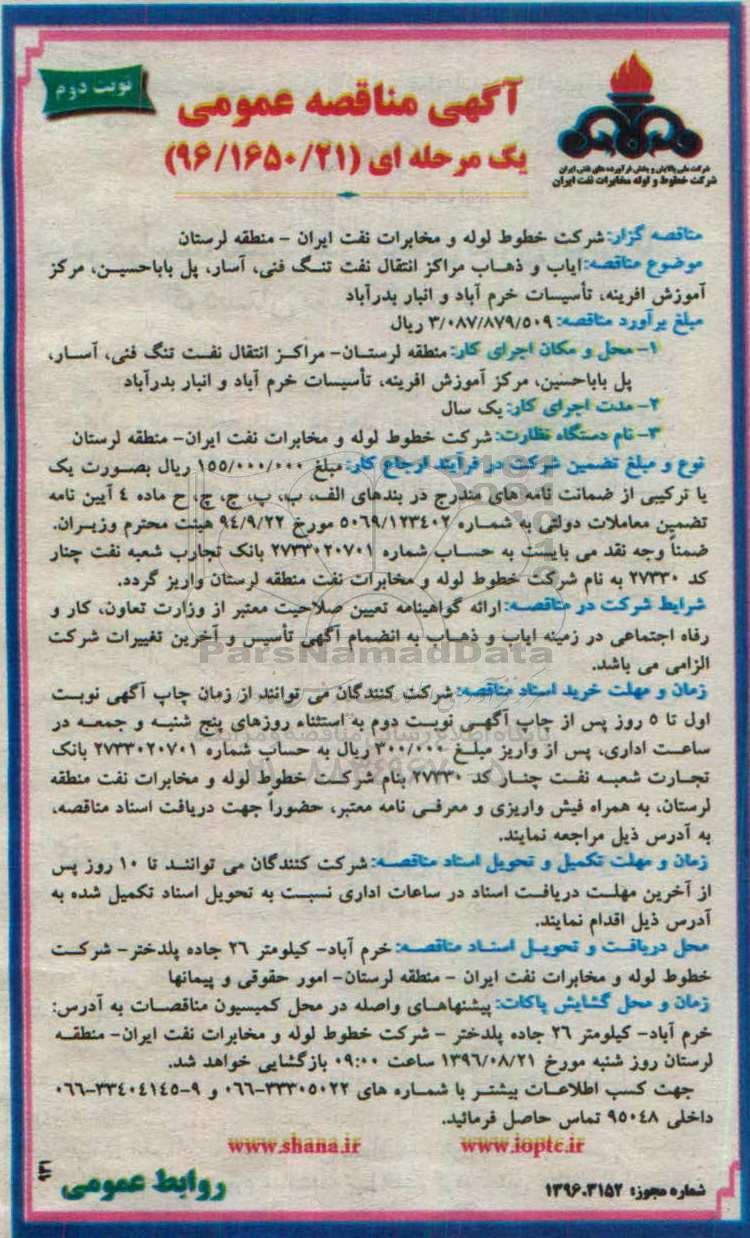 نوبت دوم
آگهی مناقصه عمومی
یک مرحله ای (۹۶/۱۶۵۰/۲۱)
شرکت ملی پالایش و پخش فرآورده های نفتی ایران
شرکت خطوط و لوله مخابرات نفت ایران
مناقصه گزار: شرکت خطوط لوله و مخابرات نفت ایران - منطقه لرستان
موضوع مناقصه: ایاب و ذهاب مراکز انتقال نفت تنگ فنی، آسار، پل باباحسین، مرکز
آموزش افرینه، تأسیسات خرم آباد و انبار بدرآباد
مبلغ برآورد مناقصه: ۳/۰۸۷/۸۷۹/۵۰۹ ریال
۱- محل و مکان اجرای کار: منطقه لرستان- مراکز انتقال نفت تنگ فنی، آسار،
پل باباحسین، مرکز آموزش افرینه، تأسیسات خرم آباد و انبار بدرآباد
۲- مدت اجرای کار: یک سال
۳- نام دستگاه نظارت: شرکت خطوط لوله و مخابرات نفت ایران- منطقه لرستان
نوع و مبلغ تضمین شرکت در فرآیند ارجاع کار: مبلغ ۱۵۵/۰۰۰/۰۰۰ ریال بصورت یک
یا ترکیبی از ضمانت نامه های مندرج در بندهای الف، ب، پ، ج، چ، ح ماده ۴ آیین نامه
تضمین معاملات دولتی به شماره ۵۰۶۹/۱۲۳۴۰۲ مورخ ۹۴/۹/۲۲ هیئت محترم وزیران.
ضمناً وجه نقد می بایست به حساب شماره ۲۷۳۳۰۲۰۷۰۱ بانک تجارب شعبه نفت چنار
کد ۲۷۳۳۰ به نام شرکت خطوط لوله و مخابرات نفت منطقه لرستان واریز گردد.
شرایط شرکت در مناقصه: ارائه گواهینامه تعیین صلاحیت معتبر از وزارت تعاون، کار و
رفاه اجتماعی در زمینه ایاب و ذهاب به انضمام آگهی تأسیس و آخرین تغییرات شرکت
الزامی می باشد.
ParsNamadData
زمان و مهلت خرید اسناد مناقصه: شرکت کنندگان می توانند از زمان چاپ آگهی نوبت
اول تا ۵ روز پس از چاپ آگهی نوبت دوم به استثناء روزهای پنج شنبه و جمعه در
ساعت اداری، پس از واریز مبلغ ۳۰۰/۰۰۰ ریال به حساب شماره ۲۷۳۳۰۲۰۷۰۱ بانک
تجارت شعبه نفت چنار کد ۲۷۳۳۰ بنام شرکت خطوط لوله و مخابرات نفت منطقه
لرستان، به همراه فیش واریزی و معرفی نامه معتبر، حضوراً جهت دریافت اسناد مناقصه،
به آدرس ذیل مراجعه نمایند.
زمان و مهلت تکمیل و تحویل اسناد مناقصه: شرکت کنندگان می توانند تا ۱۰ روز پس
از آخرین مهلت دریافت اسناد در ساعات اداری نسبت به تحویل اسناد تکمیل شده به
آدرس ذیل اقدام نمایند.
محل دریافت و تحویل اسناد مناقصه: خرم آباد- کیلومتر ۲۶ جاده پلدختر- شرکت
خطوط لوله و مخابرات نفت ایران - منطقه لرستان- امور حقوقی و پیمانها
زمان و محل گشایش پاکات: پیشنهاهای واصله در محل کمیسیون مناقصات به آدرس:
خرم آباد- کیلومتر ۲۶ جاده پلدختر - شرکت خطوط لوله و مخابرات نفت ایران- منطقه
لرستان روز شنبه مورخ ۱۳۹۶/۰۸/۲۱ ساعت ۰۹:۰۰ بازگشایی خواهد شد.
جهت کسب اطلاعات بیشتر با شماره های ۳۳۳۰۵۰۲۲-۰۶۶ و ۹-۳۳۴۰۴۱۴۵-۰۶۶
داخلی ۹۵۰۴۸ تماس حاصل فرمائید.
www.shana.ir www.ioptc.ir
شماره مجوز: ۱۳۹۶.۳۱۵۲
روابط عمومی